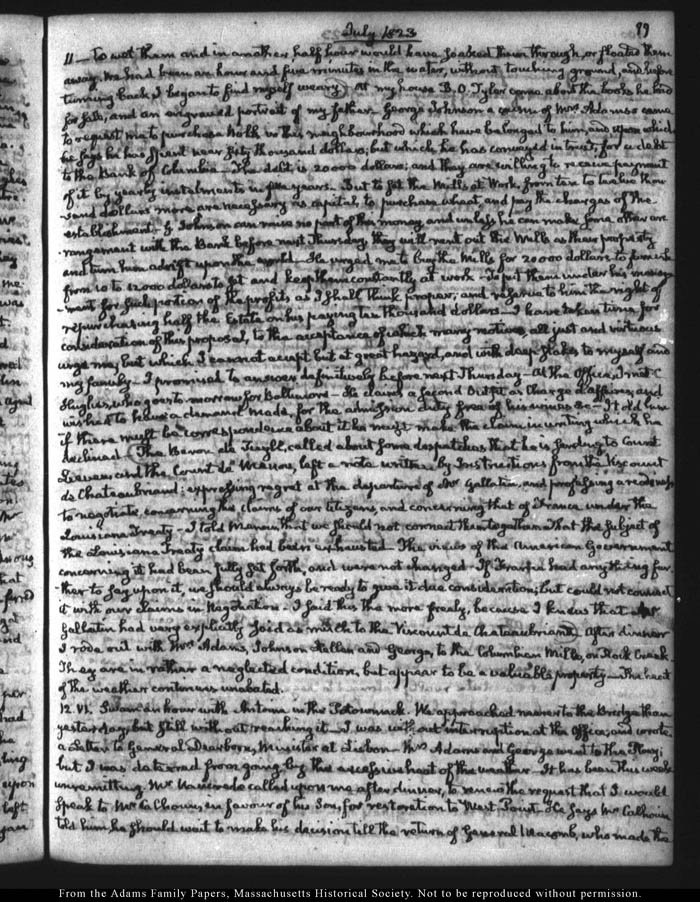 July 1823
99
11 — To wet them and in another half hour would have soaked them through, or floated them
away. We had been an hour and five minutes in the water, without touching ground, and before
turning back I began to find myself weary. At my house B. O. Tyler came about the books he had
for sale, and an engraved portrait of my father. George Johnson a cousin of Mrs Adams's came
to request me to purchase Mills in this neighbourhood which have belonged to him, and upon which
he says he has spent near fifty thousand dollars, but which he has conveyed in trust, for a debt
to the Bank of Columbia. The debt is 20000 dollars; and they are willing to receive payment
of it by yearly instalments in five years. But to set the Mills at Work, from ten to twelve thou-
sand dollars more are necessary as capital, to purchase wheat, and pay the charges of the
establishment. G. Johnson can raise no part of this money, and unless he can make some other ar-
rangement with the Bank before next Thursday they will rent out the Mills as their property
and turn him adrift upon the world. He urged me to buy the Mills for 20000 dollars to furnish
from 10 to 12000 dollars to set and keep them constantly at work. To put them under his manage-
ment for such portion of the profits as I shall think proper, and reserve to him the right of
repurchasing half the Estate on his paying ten thousand dollars. I have taken time for
consideration of this proposal, to the acceptance of which many motives, all just and virtuous
urge me, but which I cannot accept but at great hazard, and with deep stakes to myself and
my family. I promised to answer definitively before next Thursday. At the Office, I met C
Hughes, who goes to morrow for Baltimore. He claims a second Outfit as Chargé d'Affaires, and
wished to have a demand made, for the admission duty free of his wines &c. I told him
if there must be correspondence about it he must make the claim in writing which he
declined. The Baron de Tuyll, called about some despatches that he is sending to Count
Lieven and the Count de Menou, left a note written by Instructions from the Viscount
de Chateaubriand; expressing regret at the departure of Mr Gallatin, and professing a readiness
to negotiate, concerning the claims of our Citizens, and concerning that of France under the
Louisiana Treaty. I told Menou that we should not connect them together. That the subject of
the Louisiana Treaty claim had been exhausted. The views of the American Government
concerning it had been fully set forth, and were not changed. If France had any thing fur-
ther to say upon it, we should always be ready to give it due consideration; but could not connect
it with our claims in Negotiation. I said this the more freely, because I knew that Mr
Gallatin had very explicitly said as much to the Viscount de Chateaubriand. After dinner
I rode out with Mrs Adams, Johnson Hellen and George, to the Columbian Mills, on Rock Creek.
They are in rather a neglected condition, but appear to be a valuable property. The heat
of the weather continues unabated.
12. VI. Swam an hour with Antoine in the Potowmack. We approached nearer to the Bridge than
yesterday, but still without reaching it. I was without interruption at the Office, and wrote
a Letter to General Dearborn, Minister at Lisbon. Mrs Adams and George went to the Play;
but I was deterred from going by the excessive heat of the weather. It has been this week
unremitting. Mr called upon me after dinner, to renew the request that I would
speak to Mr Calhoun, in favour of his Son, for restoration to West Point. He says Mr Calhoun
told him he should wait to make his decision till the return of General Macomb, who made the
From the Adams Family Papers, Massachusetts Historical Society. Not to be reproduced without permission.